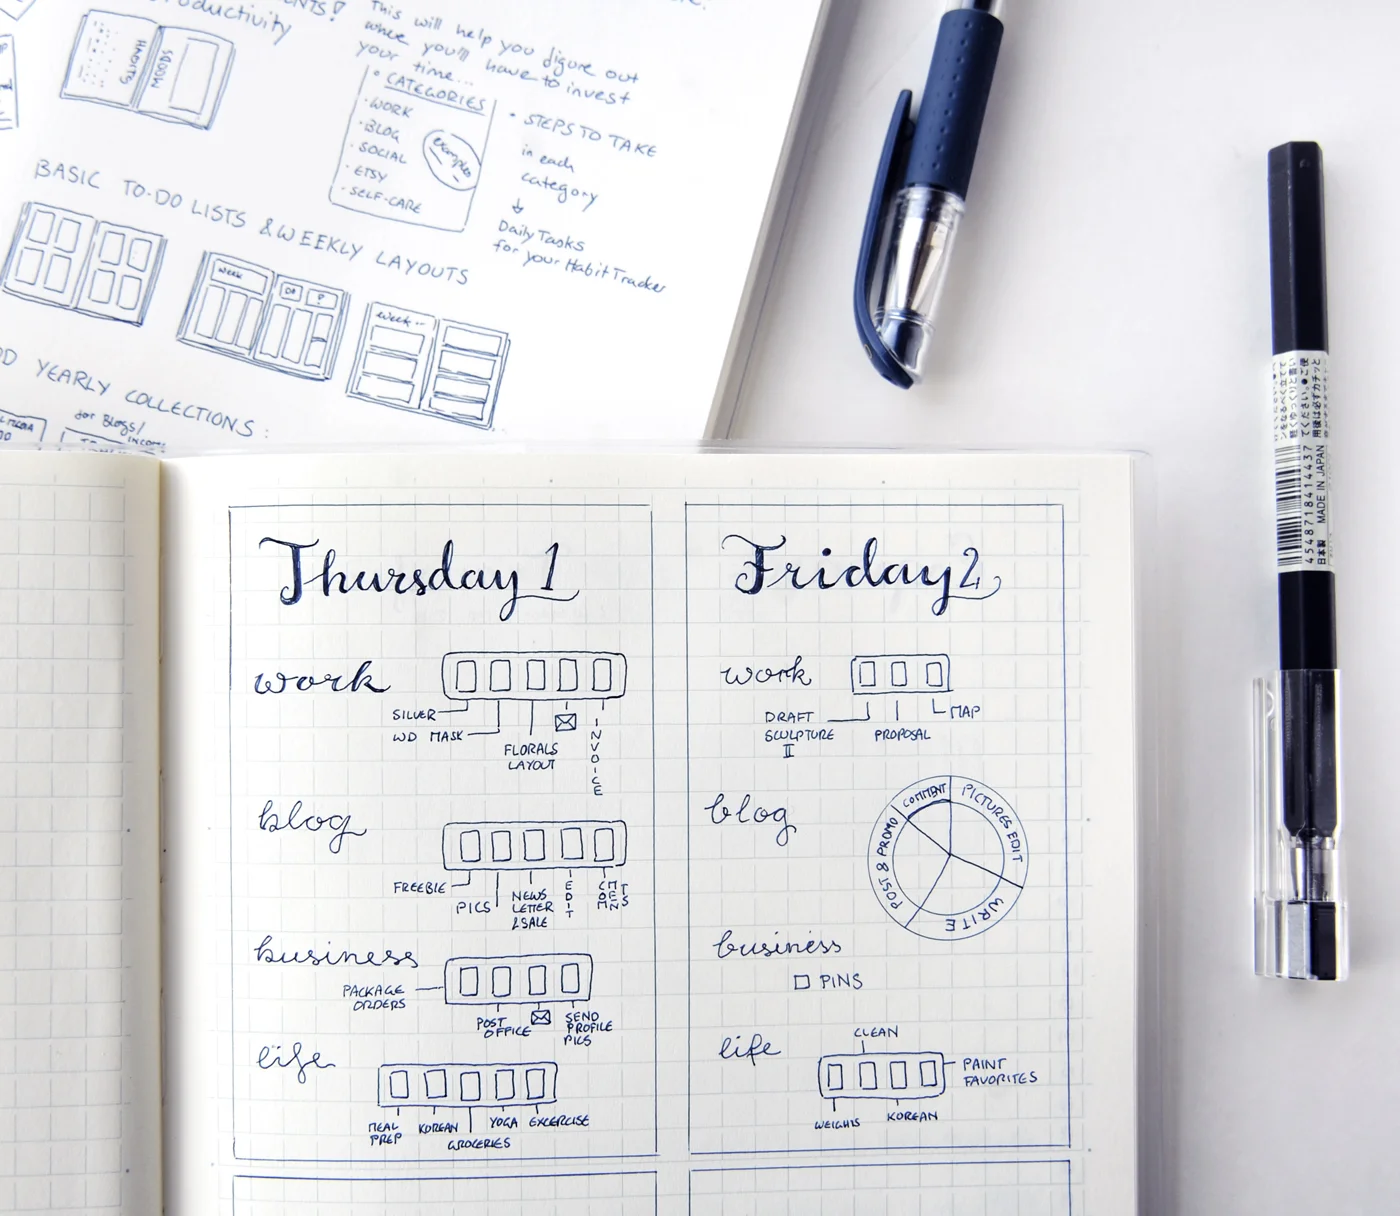 Productivity
This will help you digure out
where you'll have to invest
your time...
HABITS
MOODS
• CATEGORIES
· WORK
· BLOG
· SOCIAL
· ETSY
· SELF-CARE
examples
• STEPS TO TAKE
in each
category
↓
Daily Tasks
for your Habit Tracker
BASIC TO-DO LISTS & WEEKLY LAYOUTS
week
week...
YEARLY COLLECTIONS:
for Blogs/
INCOME
Thursday 1
work
SILVER
WD MASK
FLORALS
LAYOUT
INVOICE
blog
FREEBIE
PICS
NEWS
LETTER
& SALE
EDIT
COMMENTS
business
PACKAGE
ORDERS
POST
OFFICE
SEND
PROFILE
PICS
life
MEAL
PREP
KOREAN
GROCERIES
YOGA
EXCERCISE
Friday 2
work
DRAFT
SCULPTURE
II
PROPOSAL
MAP
blog
COMMENT
PICTURES EDIT
WRITE
POST & PROMO
business
PINS
life
CLEAN
PAINT
FAVORITES
WEIGHTS
KOREAN
4548718414437
日本製 MADE IN JAPAN